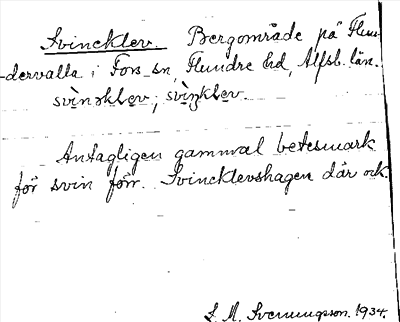 Svincklev. Bergområde på Flun-
dervalla i Fors sn, Flundre hd, Älfsb. län.
svìnəklev, svìŋklev.
Antagligen gammal betesmark
för svin förr. Svincklevshagen där ock.
L. M. Svenungsson. 1934.